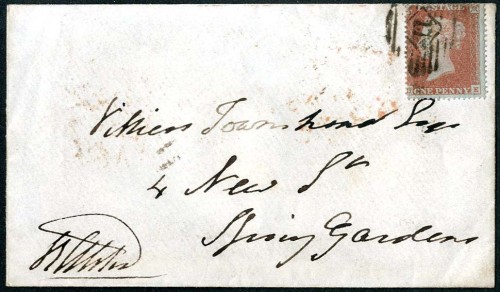 POSTAGE
ONE PENNY
Villiers Townshend Esq
4 New St
Spring Gardens